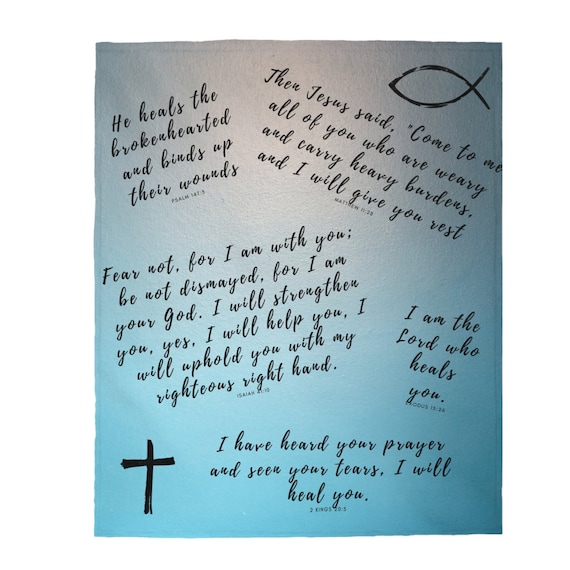 He heals the
brokenhearted
and binds up
their wounds
PSALM 147:3
Then Jesus said, "Come to me
all of you who are weary
and carry heavy burdens,
and I will give you rest
MATTHEW 11:28
Fear not, for I am with you;
be not dismayed, for I am
your God. I will strengthen
you, yes, I will help you, I
will uphold you with my
righteous right hand.
ISAIAH 41:10
I am the
Lord who
heals
you.
EXODUS 15:26
I have heard your prayer
and seen your tears, I will
heal you.
2 KINGS 20:5